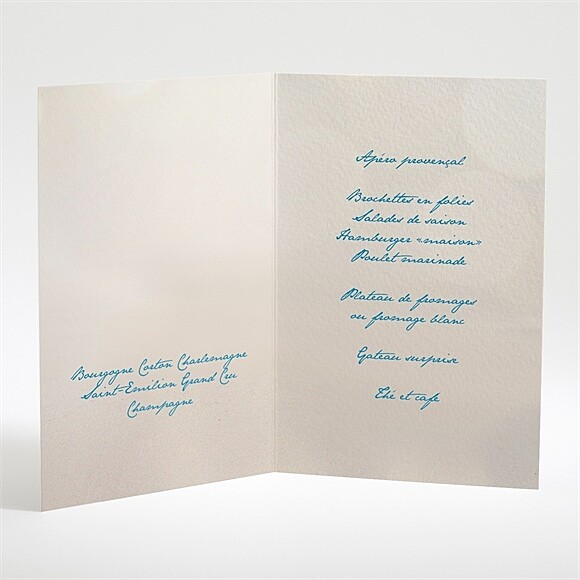 Bourgogne Corton Charlemagne
Saint-Emilion Grand Cru
Champagne
Apéro provençal
Brochettes en folies
Salades de saison
Hamburger «maison»
Poulet marinade
Plateau de fromages
ou fromage blanc
Gateau surprise
Thé et cafe